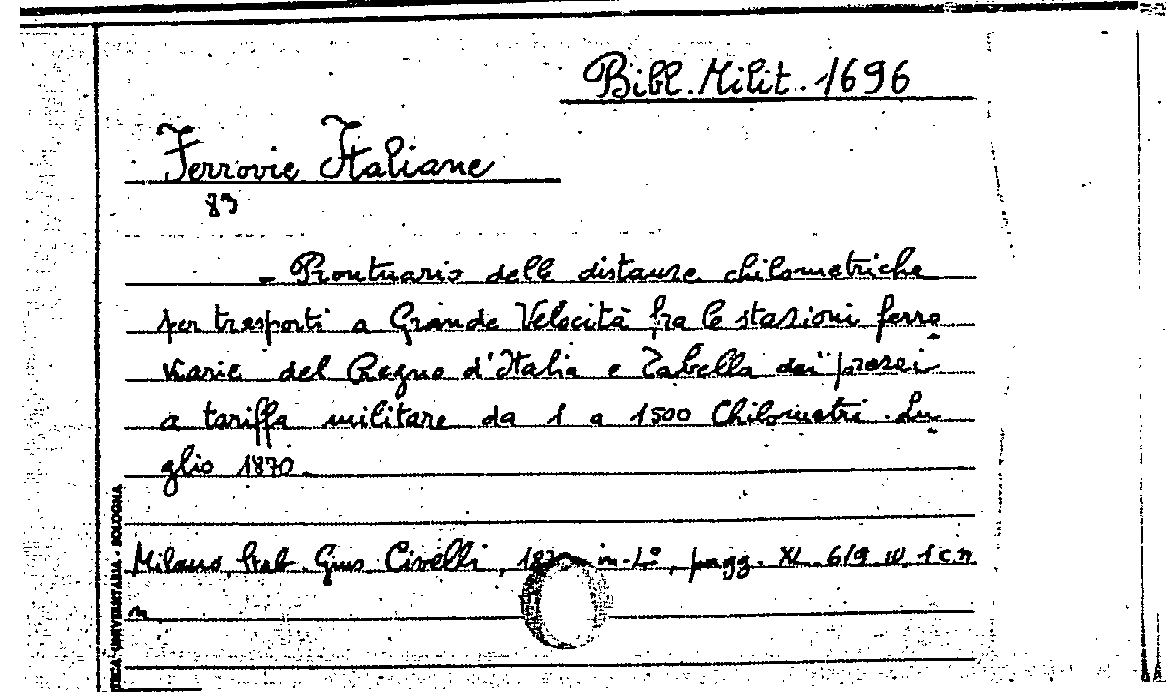 Bibl. Milit. 1696
Ferrovie Italiane
83
- Prontuario delle distanze chilometriche
per trasporti a Grande Velocità fra le stazioni ferro
viarie del Regno d'Italia e Tabella dei prezzi
a tariffa militare da 1 a 1500 Chilometri. Lu
glio 1870.
Milano, Stab. Gius Civelli, in-4º, pagg. XL. 619 1 c. n
n.
UNIVERSITARIA - BOLOGNA